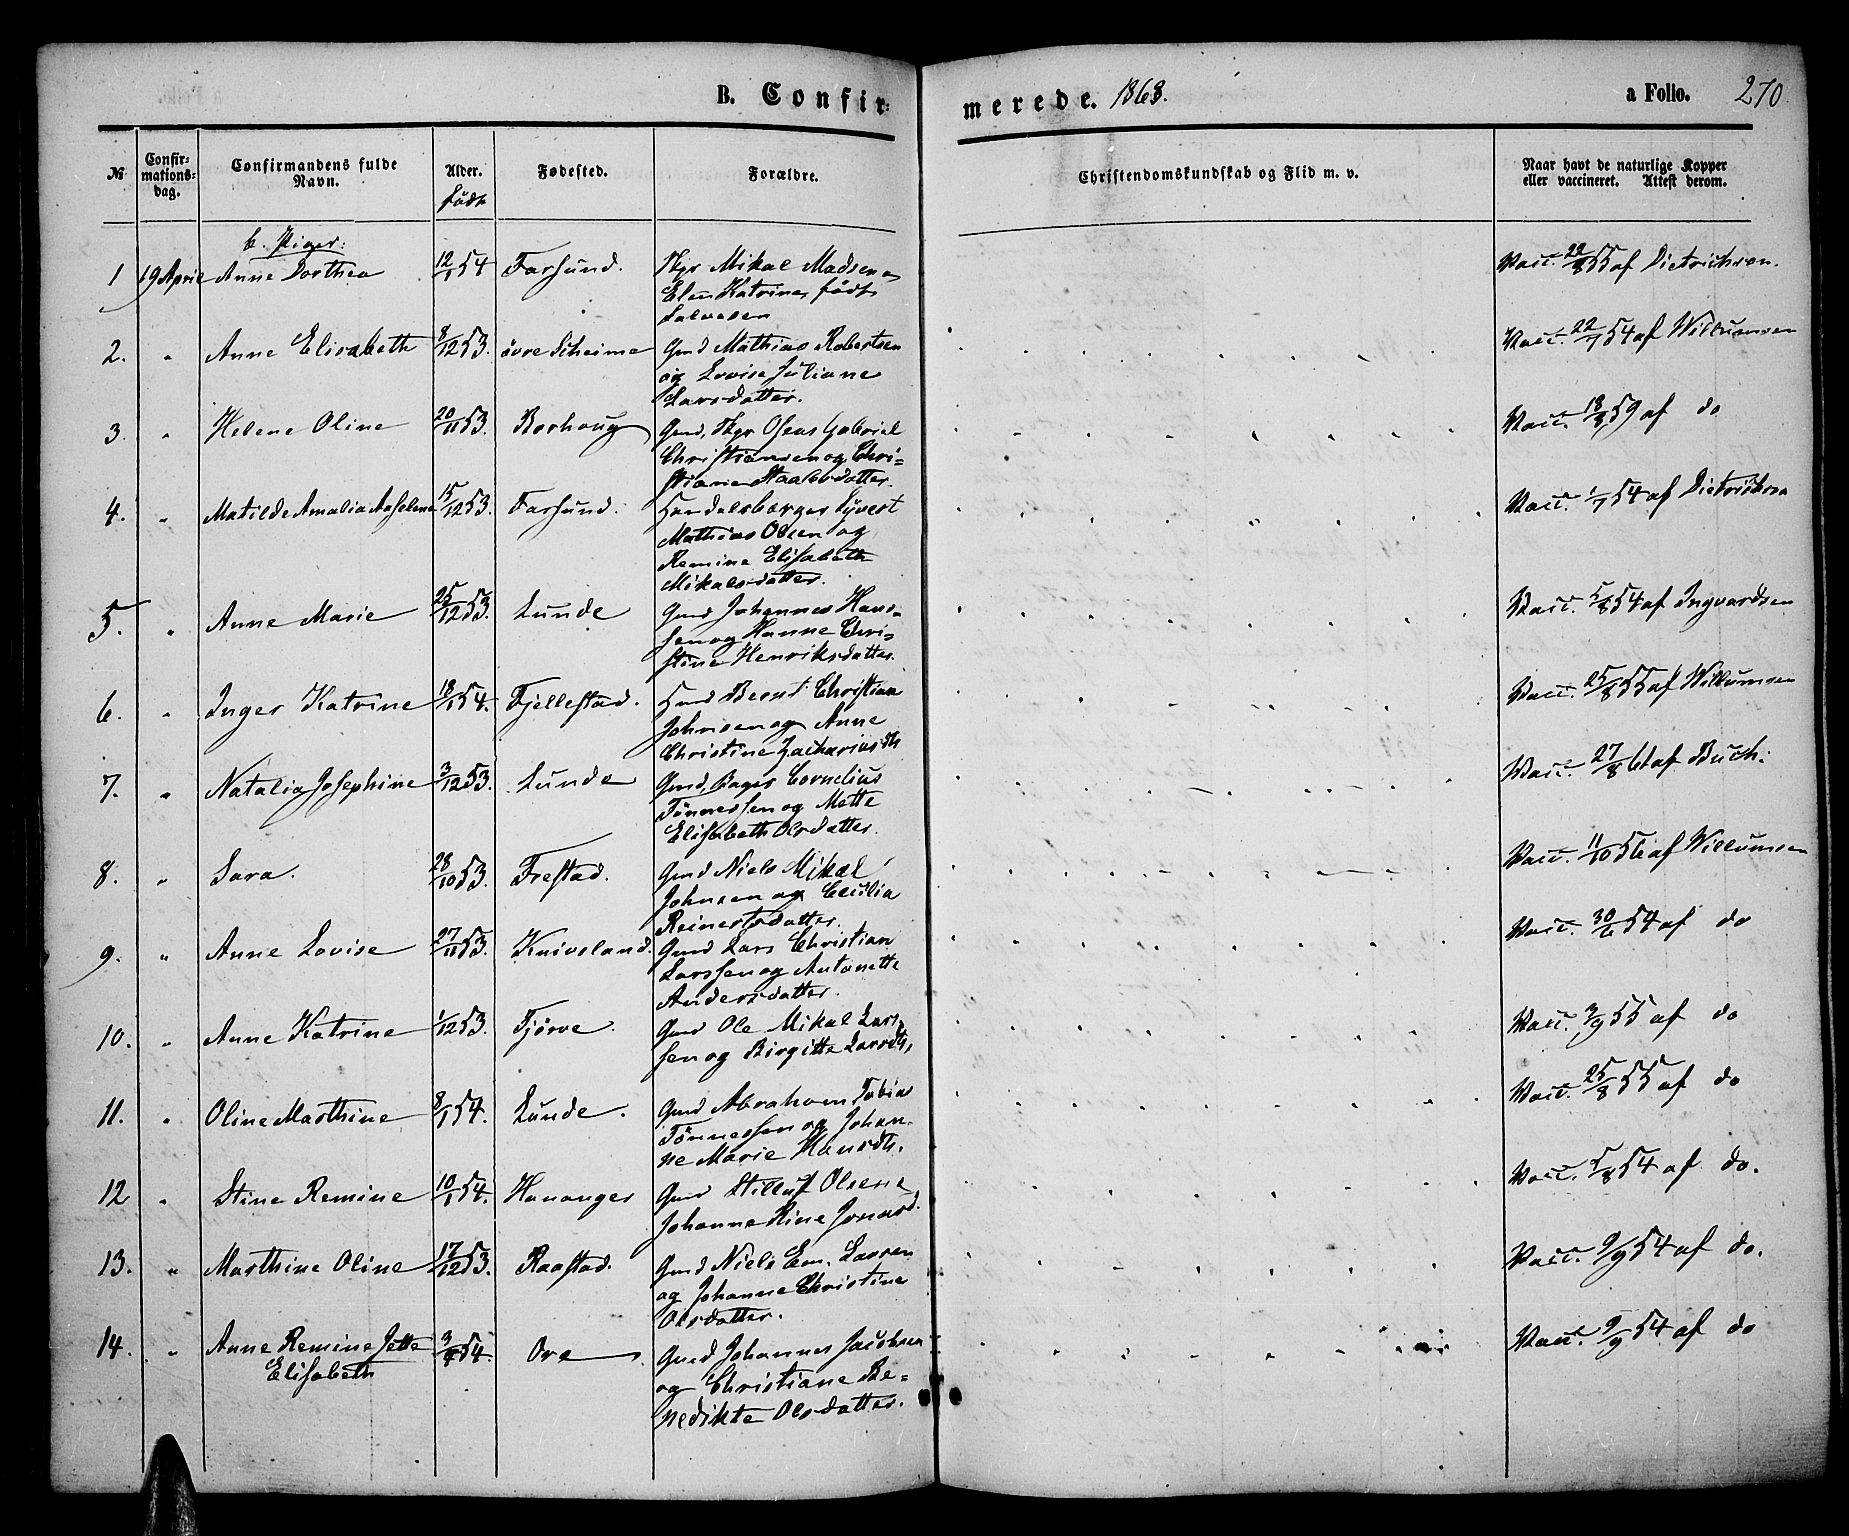 B. Confir-
merede. 1868.
a Folio. 270.
№
Confir-
mations-
dag.
Confirmandens fulde
Navn.
Alder.
født
Fødested.
Forældre.
Christendomskundskab og Flid m. v.
Naar havt de naturlige Kopper
eller vaccineret. Attest derom.
b. Piger:
1 19 April Anne Dorthea 12/1 54 Farsund. Mikal Madsen
Elen Katrine, født
Salvesen
Vacc. 55 af Dietrichson.
2. " Anne Elisabeth 8/12 53. övre Skeime Gmd Mathias Robertsen
og Lovise Juliane
Larsdatter.
Vacc. 22/7 54 af Willumsen
3. " Helene Oline 20/11 53. Borhoug Gmd, Oseas Gabriel
Christiansen og Chri-
stiane Staalesdatter.
Vacc. 18/8 59 af do
4. " Matilde Amalia Aaselene 15/12 53. Farsund. Handelsborger Syvert
Mathias Olsen og
Remine Elisabeth
Mikalsdatter.
Vacc. 1/7 54 af Dietrichson
5. " Anne Marie 25/12 53. Lunde Gmd Johannes Hans-
sen og Hanne Chri-
stine Henriksdatter.
Vacc. 5/8 54 af Ingvardsen
6. " Inger Katrine 18/1 54. Fjellestad. Hmd Bernt Christian
Johnsen og Anne
Christine Zachariasdtr
Vacc. 25/8 55 af Willumsen
7. " Natalia Josephine 3/12 53. Lunde Gmd, Bager Cornelius
Tönnessen og Mette
Elisabeth Olsdatter.
Vacc. 27/8 61 af Buch.
8. " Sara. 28/10 53. Frestad. Gmd Niels Mikal
Johnsen og Cecilia
Reinertsdatter.
Vacc. 11/10 56 af Willumsen
9. " Anne Lovise 27/11 53. Knivsland. Gmd Lars Christian
Larssen og Antonette
Andersdatter.
Vacc. 30/6 54 af do
10. " Anne Katrine 1/12 53. Tjörve. Gmd Ole Mikal Lars-
sen og Birgitte Larsdtr,
Vacc. 3/9 55 af do
11. " Oline Marthine 8/1 54. Lunde. Gmd Abraham Tobias
Tönnessen og Johan-
ne Marie Hansdtr.
Vacc. 25/8 55 af do
12 " Stine Remine 10/1 54. Hananger Gmd Stilluf Olsen
Johanne Stine Jonasd.
Vacc. 5/8 54 af do.
13. " Marthine Oline 17/12 53. Raastad. Gmd Niels Em. Larsen
og Johanne Christine
Olsdatter.
Vacc. 9/9 54 af do.
14. " Anne Remine Jette
Elisabeth 3/4 54. Ore Gmd Johannes Jacobsen
og Christiane Be-
nedikte Olsdatter.
Vacc. 9/9 54 af do